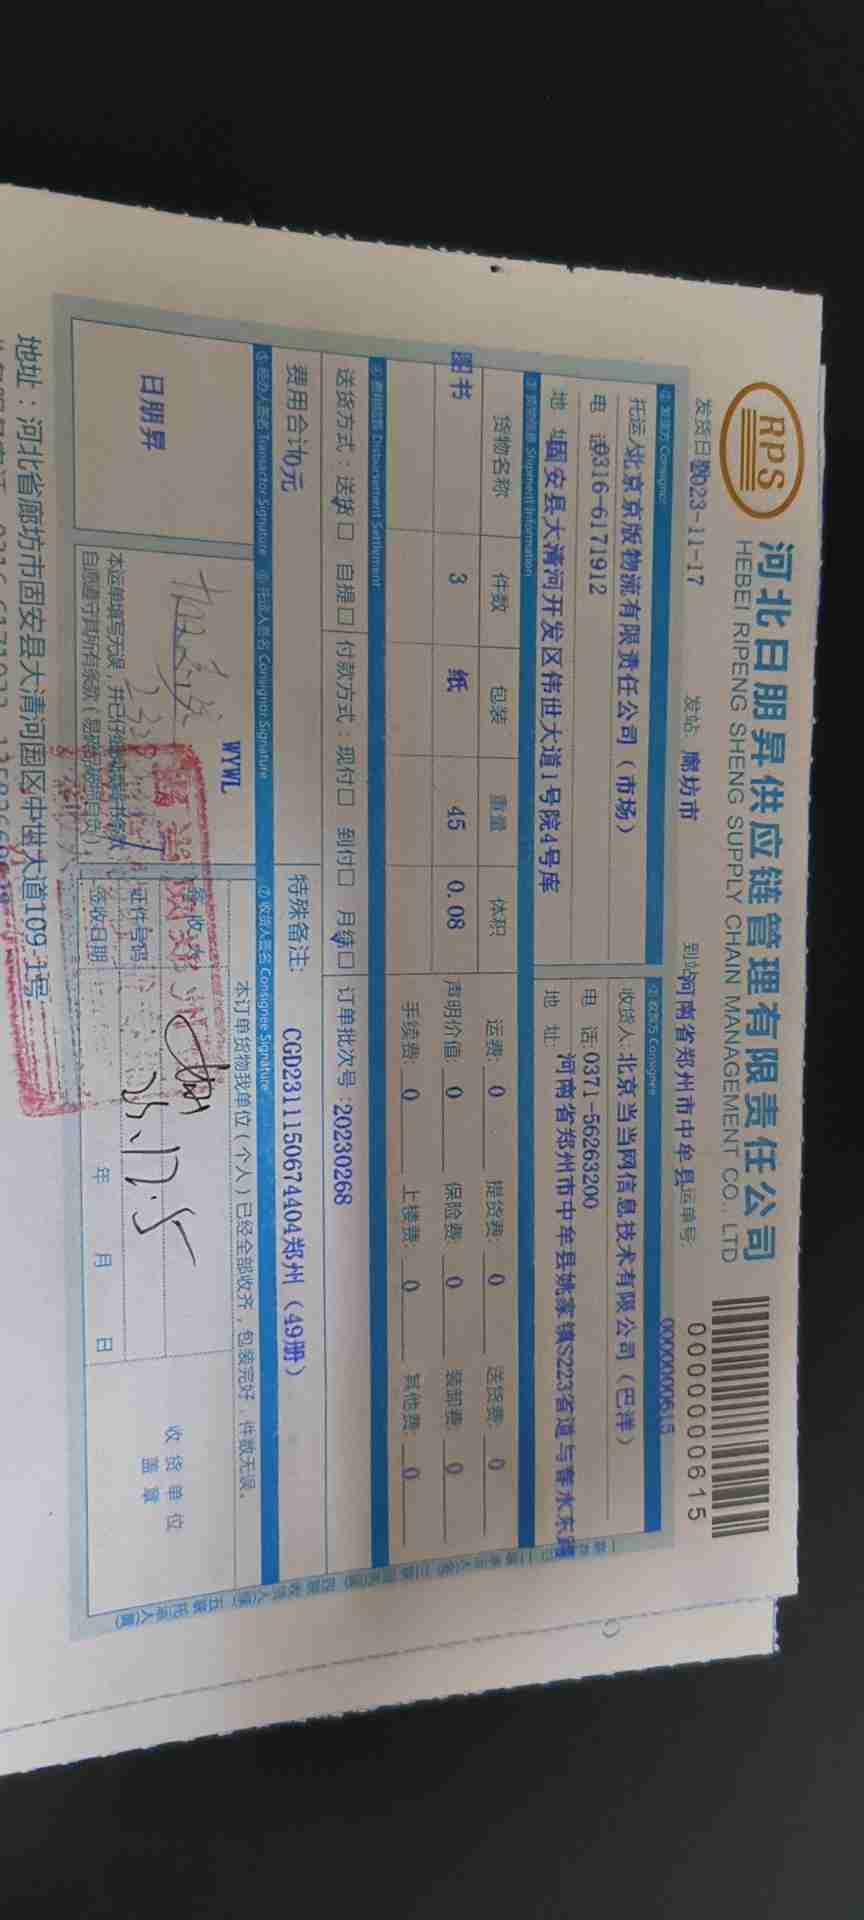 RPS
河北日朋昇供应链管理有限责任公司
HEBEI RIPENG SHENG SUPPLY CHAIN MANAGEMENT CO., LTD
0000000615
发货日期2023-11-17 发站: 廊坊市 到站河南省郑州市中牟县运单号: 0000000615
① 发货方 Consignor ② 收货方 Consignee
托运人北京京版物流有限责任公司（市场） 收货人:北京当当网信息技术有限公司（巴洋）
电 话0316-6171912 电 话:0371-56263200
地 址固安县大清河开发区伟世大道1号院4号库 地 址: 河南省郑州市中牟县姚家镇S223省道与春水东路
③ 货物信息 Shipment Information
货物名称 件数 包装 重量 体积 运费: 0 提货费: 0 送货费: 0
图书 3 纸 45 0.08 声明价值: 0 保险费: 0 装卸费: 0
手续费: 0 上楼费: 0 其他费: 0
④ 费用结算 Disbursement Settlement
送货方式：送货☐ 自提☐ 付款方式：现付☐ 到付☐ 月结☐ 订单批次号:20230268
费用合计0元 特殊备注: CGD2311150674404郑州（49册）
⑤ 经办人签名 Transactor Signature ⑥ 托运人签名 Consignor Signature ⑦ 收货人签名 Consignee Signature
日朋昇
WYWL
本订单货物我单位（个人）已经全部收齐，包装完好，件数无误。
证件号码
签收日期 年 月 日
收货单位
盖章
地址：河北省廊坊市固安县大清河园区中世大道109-1号